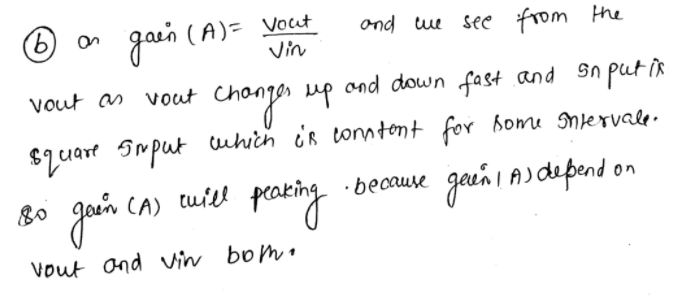 (b) as gain (A) = Vout / Vin and we see from the
vout as vout changes up and down fast and Input is
square Input which is constent for some Intervale.
so gain (A) will peaking . because gain (A) depend on
vout and vin both.